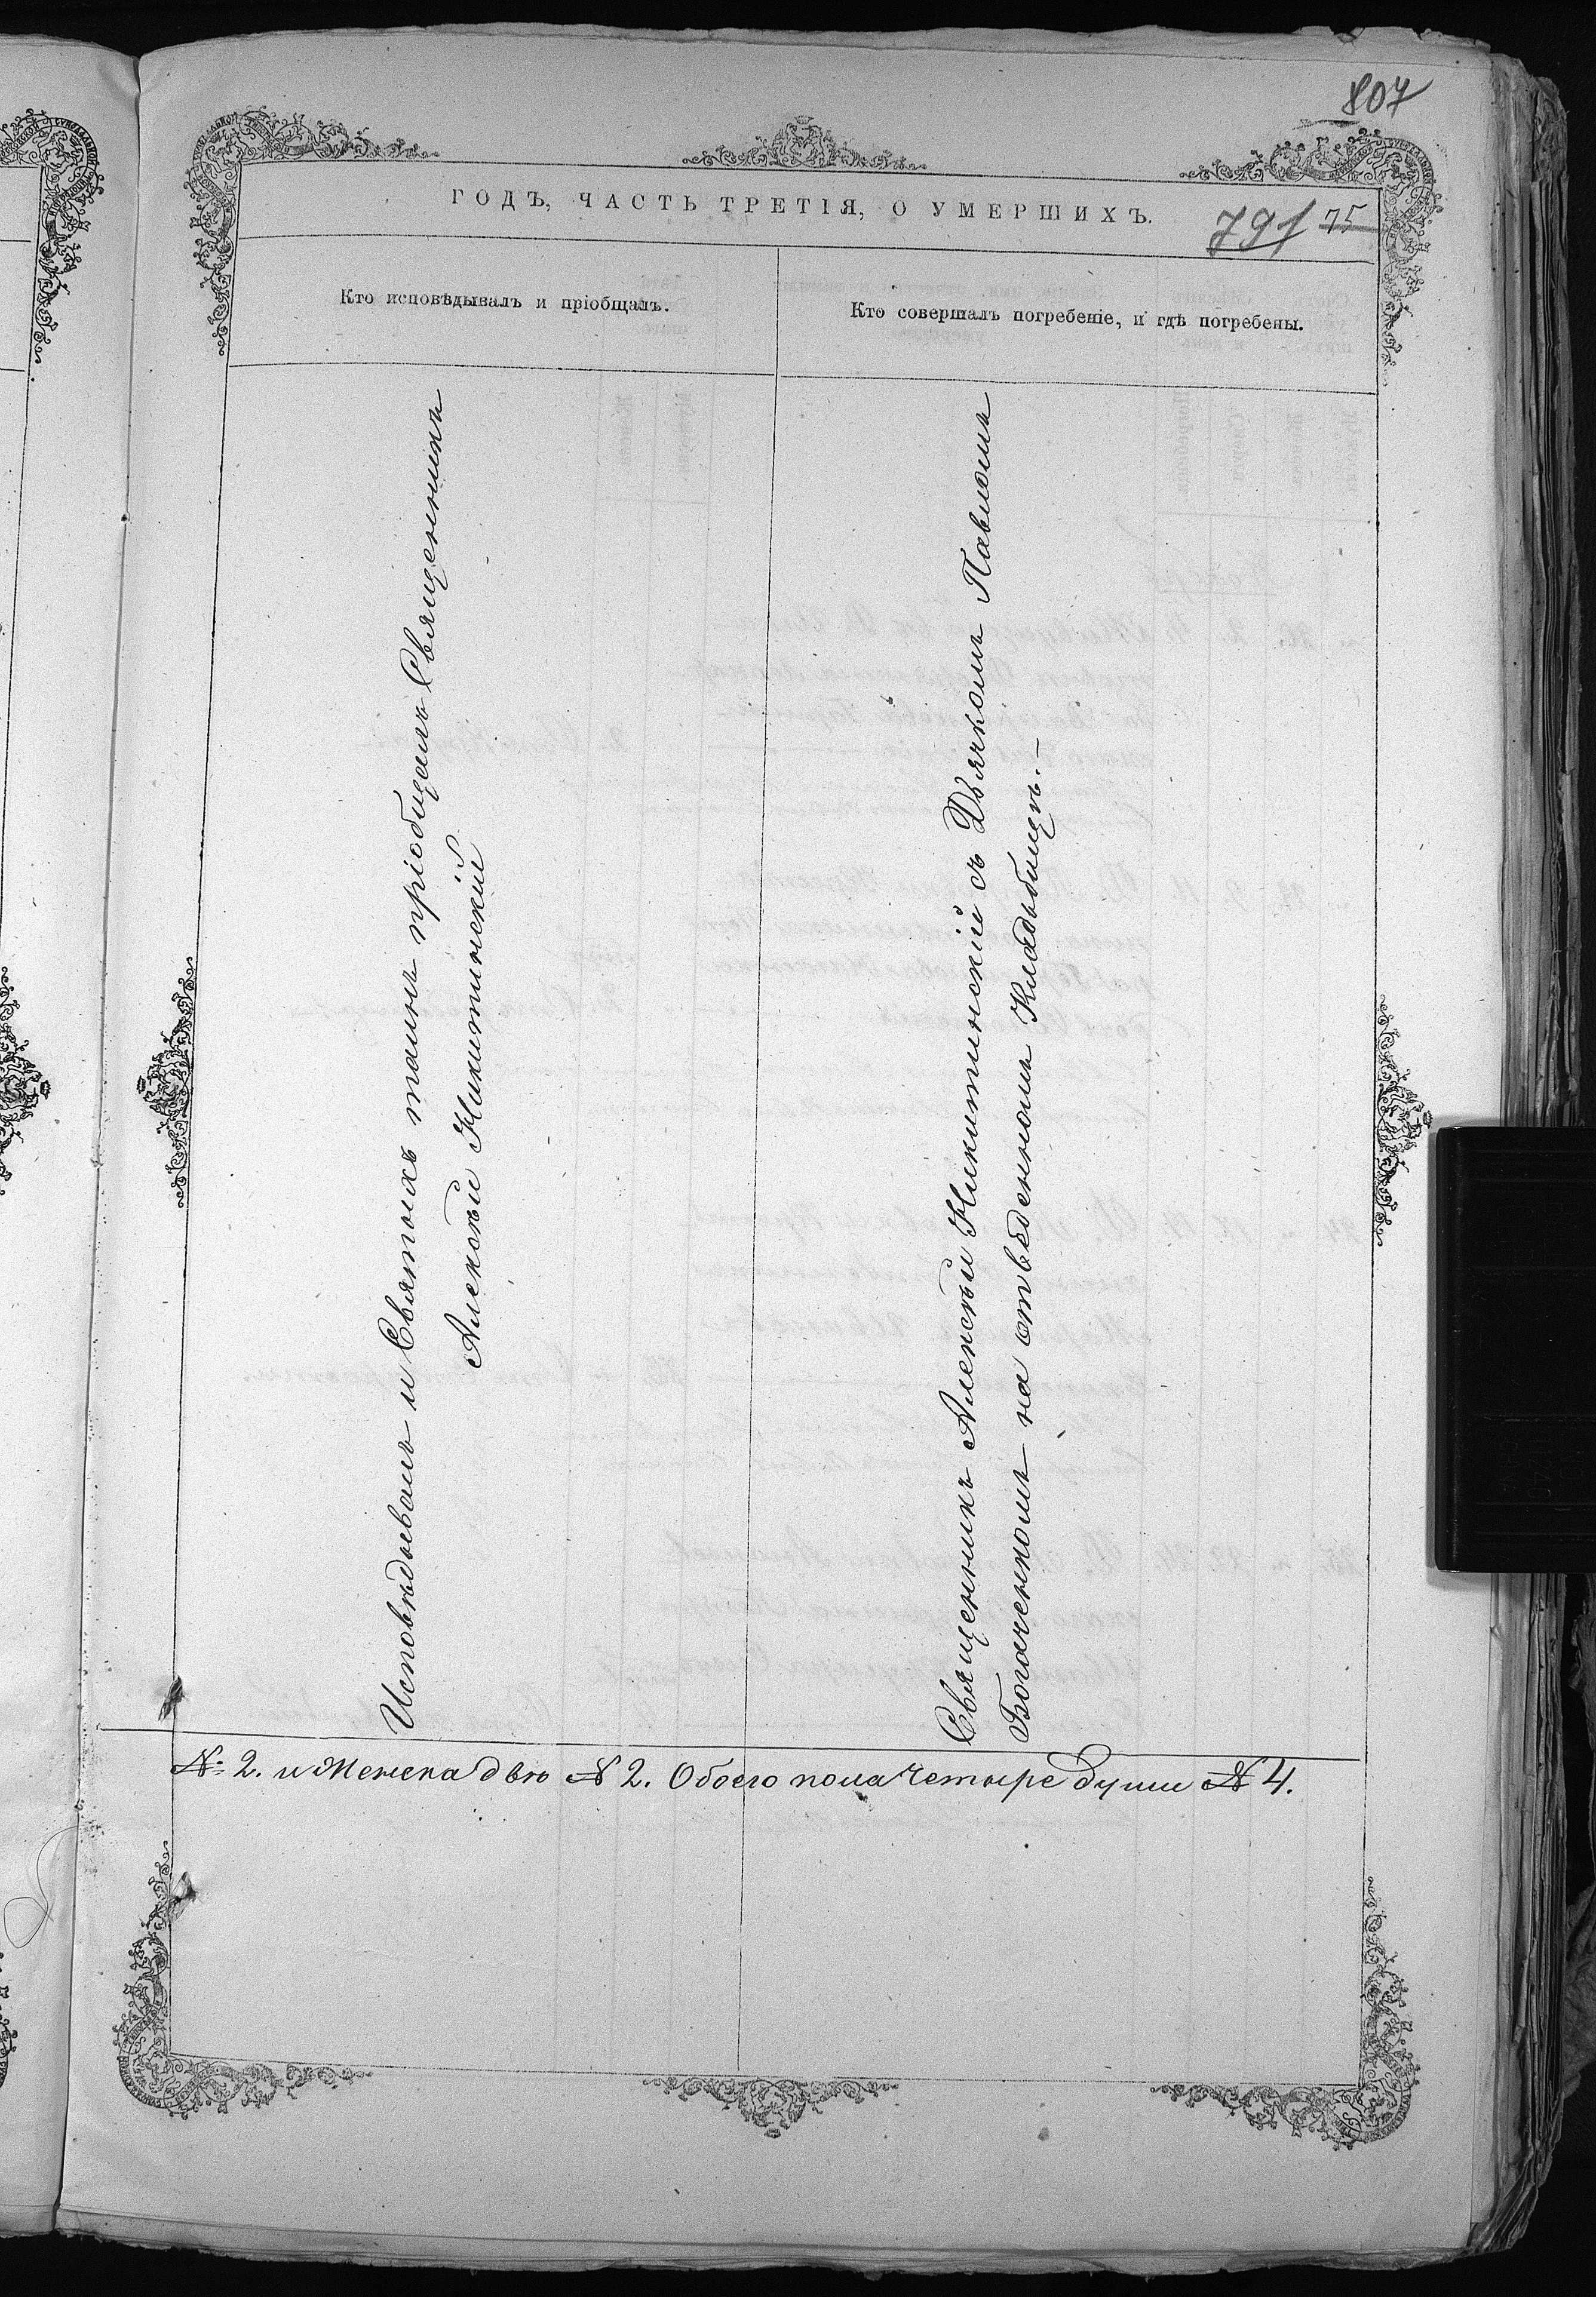 807
ГОДЪ, ЧАСТЬ ТРЕТІЯ, О УМЕРШИХЪ.
791 75
Кто исповѣдывалъ и пріобщалъ.
Кто совершалъ погребеніе, и гдѣ погребены.
Исповѣдывалъ и Святыхъ таинъ пріобщалъ Священникъ
Алексѣй Никитинскій
Священникъ Алексѣй Никитинскій съ Дьячкомъ Павломъ
Богаченкомъ на отведенномъ Кладбищѣ.
№ 2. и Женска двѣ № 2. Обоего пола Четыре души № 4.